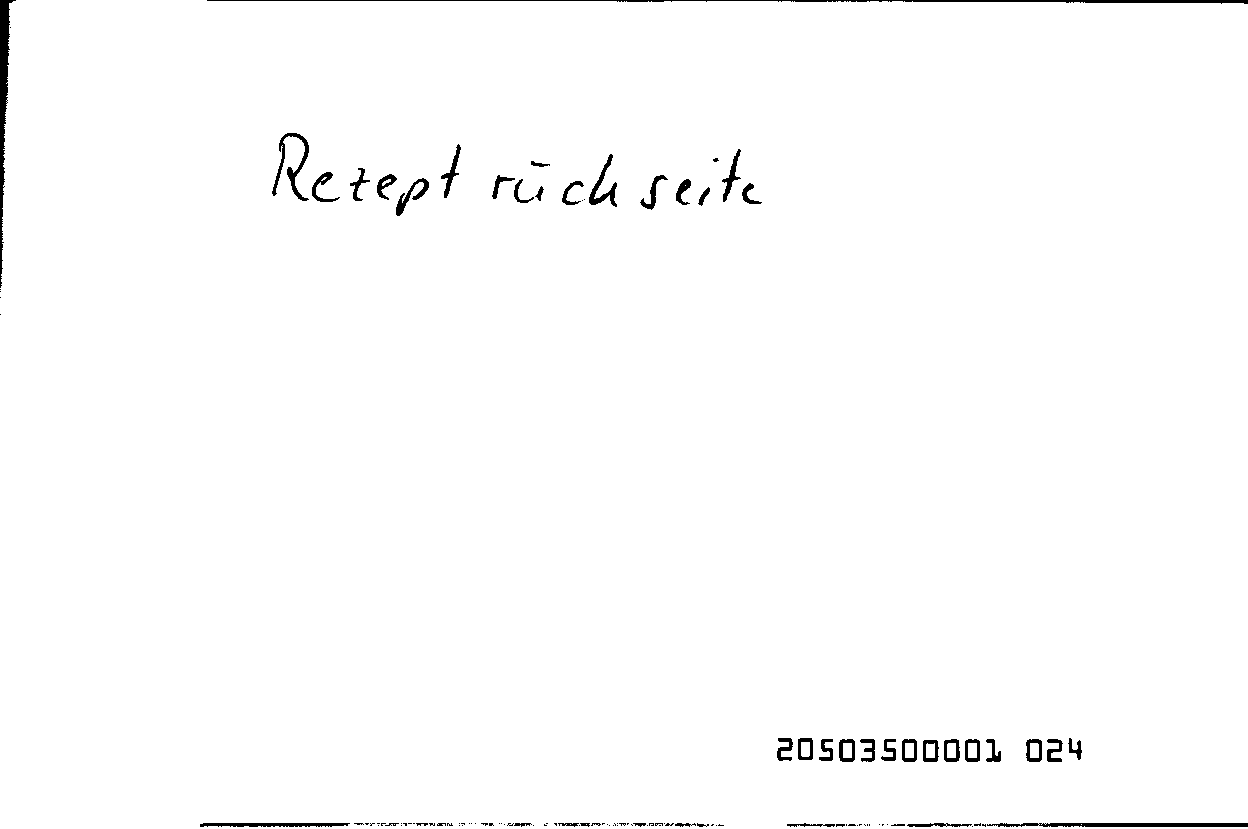 Rezept rückseite
20503500001 024